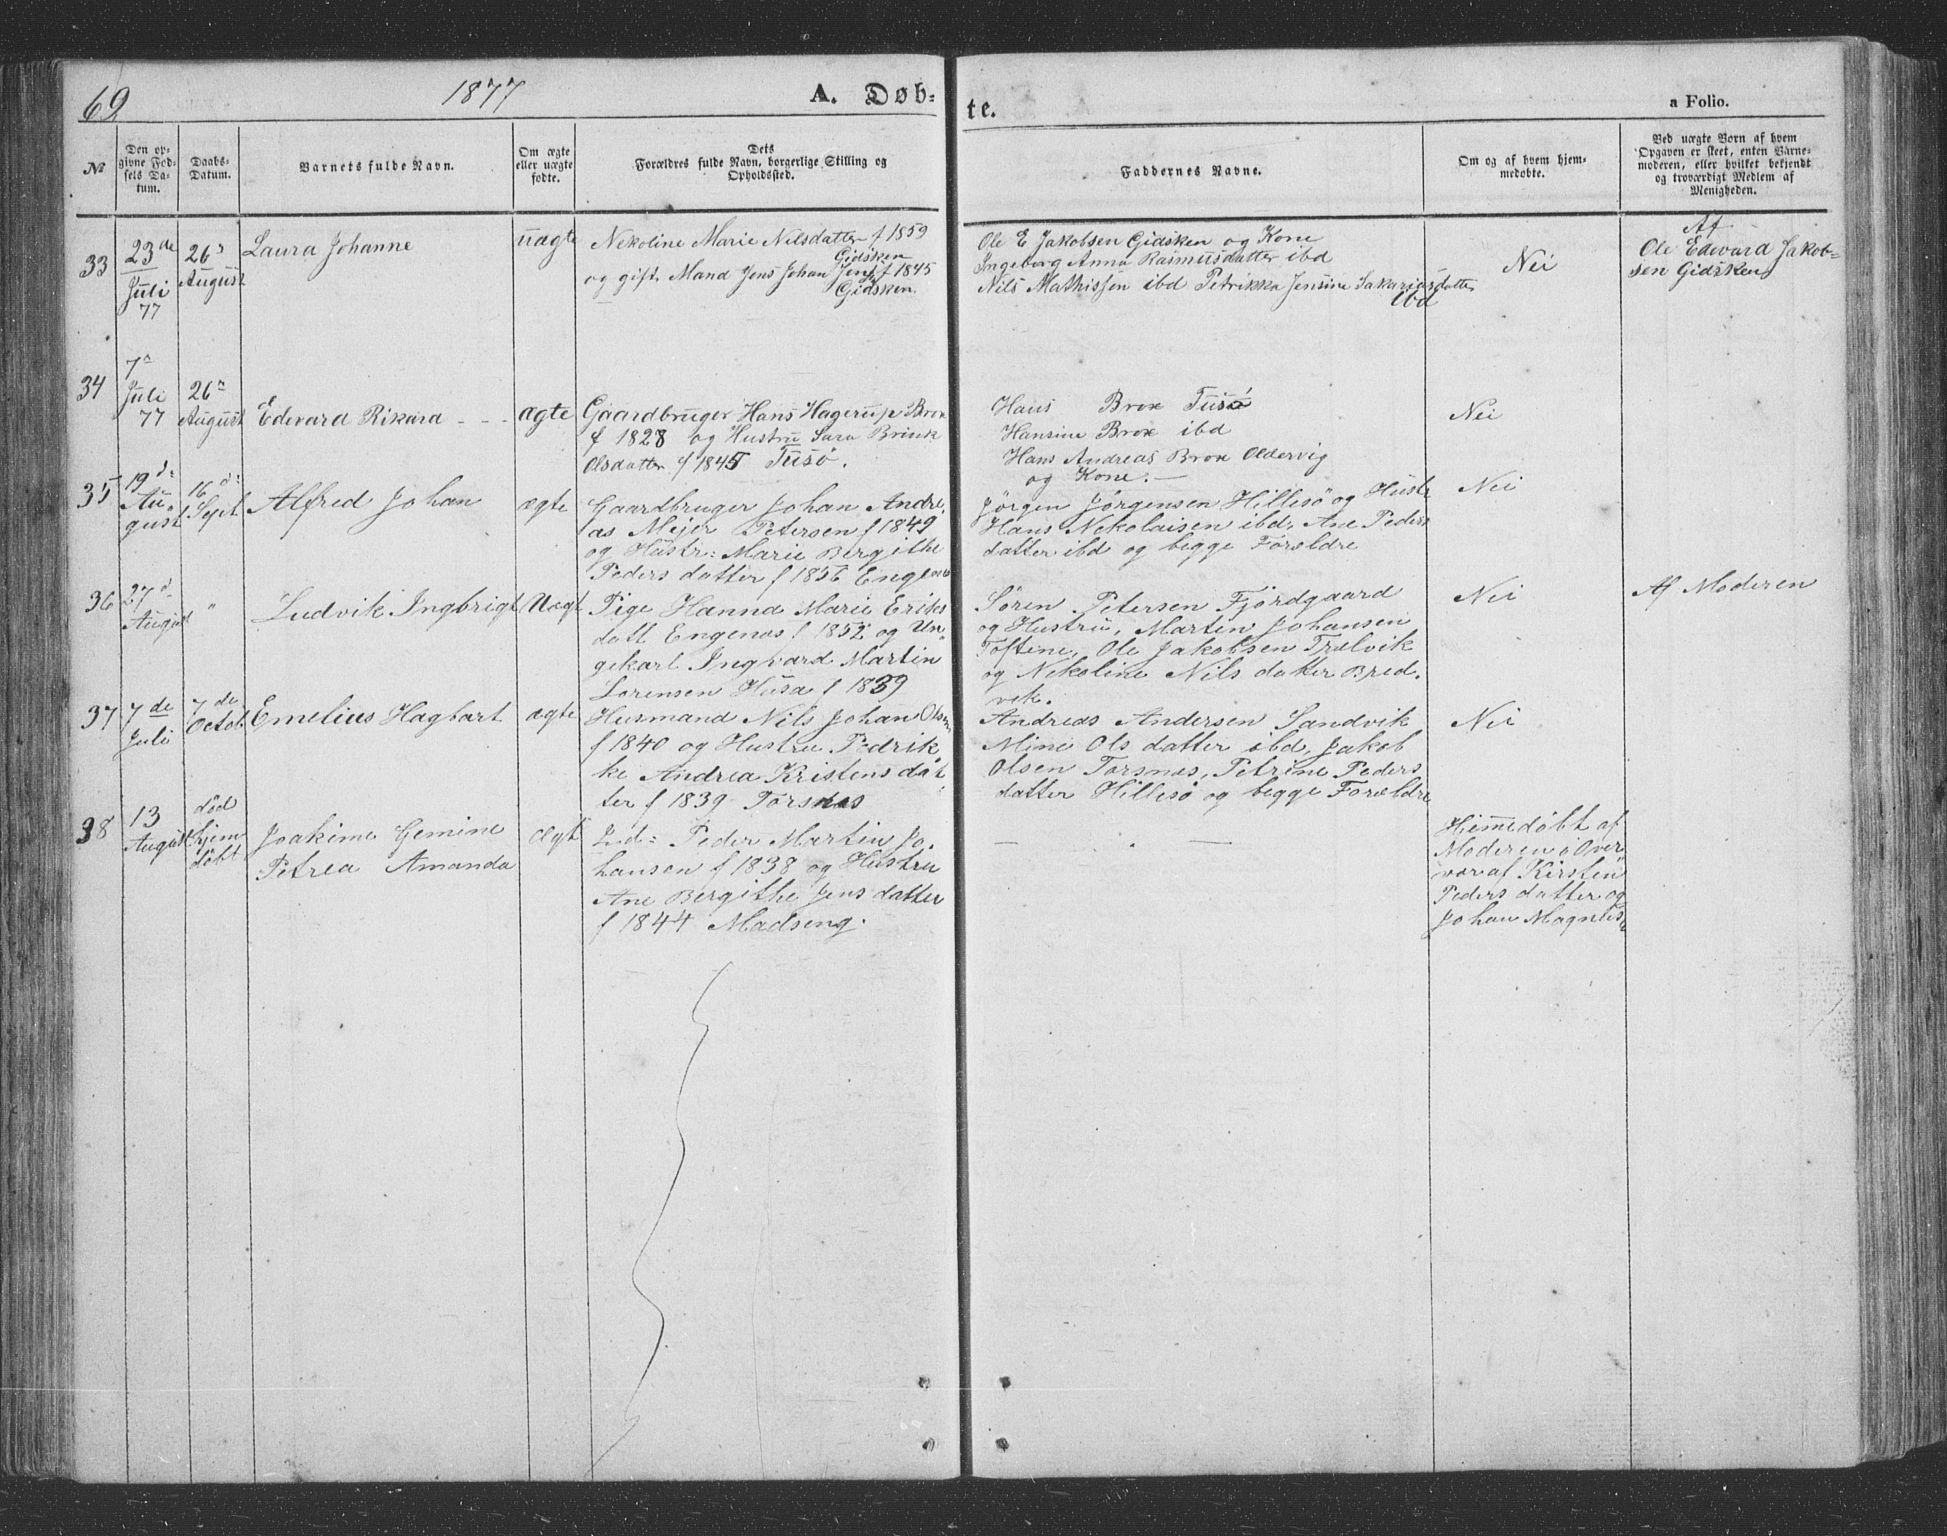 69
1877
A. Døb-
te.
a Folio.
No
Den op-
givne Fød-
sels Da-
tum.
Daabs-
Datum.
Barnets fulde Navn.
Om ægte
eller uægte
fødte.
Dets
Forældres fulde Navn, borgerlige Stilling og
Opholdssted.
Faddernes Navne.
Om og af hvem hjem-
medøbte.
Ved uægte Born af hvem
Opgaven er skeet, enten Barne-
moderen, eller hvilket bekjendt
og troværdigt Medlem af
Menigheden.
33
23de
Juli
77
26d
August
Laura Johanne
uægte
Nekoline Marie Nilsdatter f 1859
Gidsken
og gift. Mand Jens Johan Jens f 1845
Gidsken.
Ole E Jakobsen Gidsken og Kone
Ingeborg Anna Rasmusdatter ibd
Nils Mathissen ibd Petrikka Jensine Sakariasdatter
ibd
Nei
Af
Ole Edevard Jakob=
sen Gidsken
34
7n
Juli
77
26n
August
Edevard Rikard - - -
ægte
Gaardbruger Hans Hagerup Brox
f 1828 og Hustru Sara Brink
Olsdatter f 1845 Tusø.
Hans Brox Tusø
Hansine Brox ibd
Hans Andreas Brox Oldervig
og Kone. -
Nei
35
19d:
Au
gust
16d:
Sept
Alfred Johan
ægte
Gaardbruger Johan Andre,
as Mejer Petersen f 1849
og Hustr: Marie Bergithe
Peders datter f 1856 Engenes
Jørgen Jørgensen Hillesø og Hustr
Hans Nekolaisen ibd, Ane Peders
datter ibd og begge Forældre
Nei
36
27d.
August
"
Ludvik Ingbrigt
Uægt
Pige Hanna Marie Eriks
datt. Engenæs f 1852 og Un,
gekarl Ingvard Martin
Lorensen Husa f 1839
Søren Petersen Fjordgaard
og Hustru, Martin Johansen
Toftene, Ole Jakobsen Trælvik
og Nekoline Nils datter Bred,
vik.
Nei
Af Moderen
37
7de
Juli
7de
Octob.
Emelius Hagbart
ægte
Husmand Nils Johan Olsen
f 1840 og Hustru Pedrik
ke Andrea Kristens dat
ter f 1839 Torsnæs
Andreas Andersen Sandvik
Mine Ols datter ibd, Jakob
Olsen Torsnæs, Petrine Peders
datter Hillesø og begge Forældre
Nei
38
13
August
død
hjem
døbt
Joakime Gemine
Petrea Amanda
Ægt
Ind: Peder Martin Jo,
hansen f 1838 og Hustru
Ane Bergithe Jens datter
f 1844 Madseng.
— —
Hjemmedøbt af
Moderen, Over
vær af Kirsten
Peders datter og
Johan Magnus